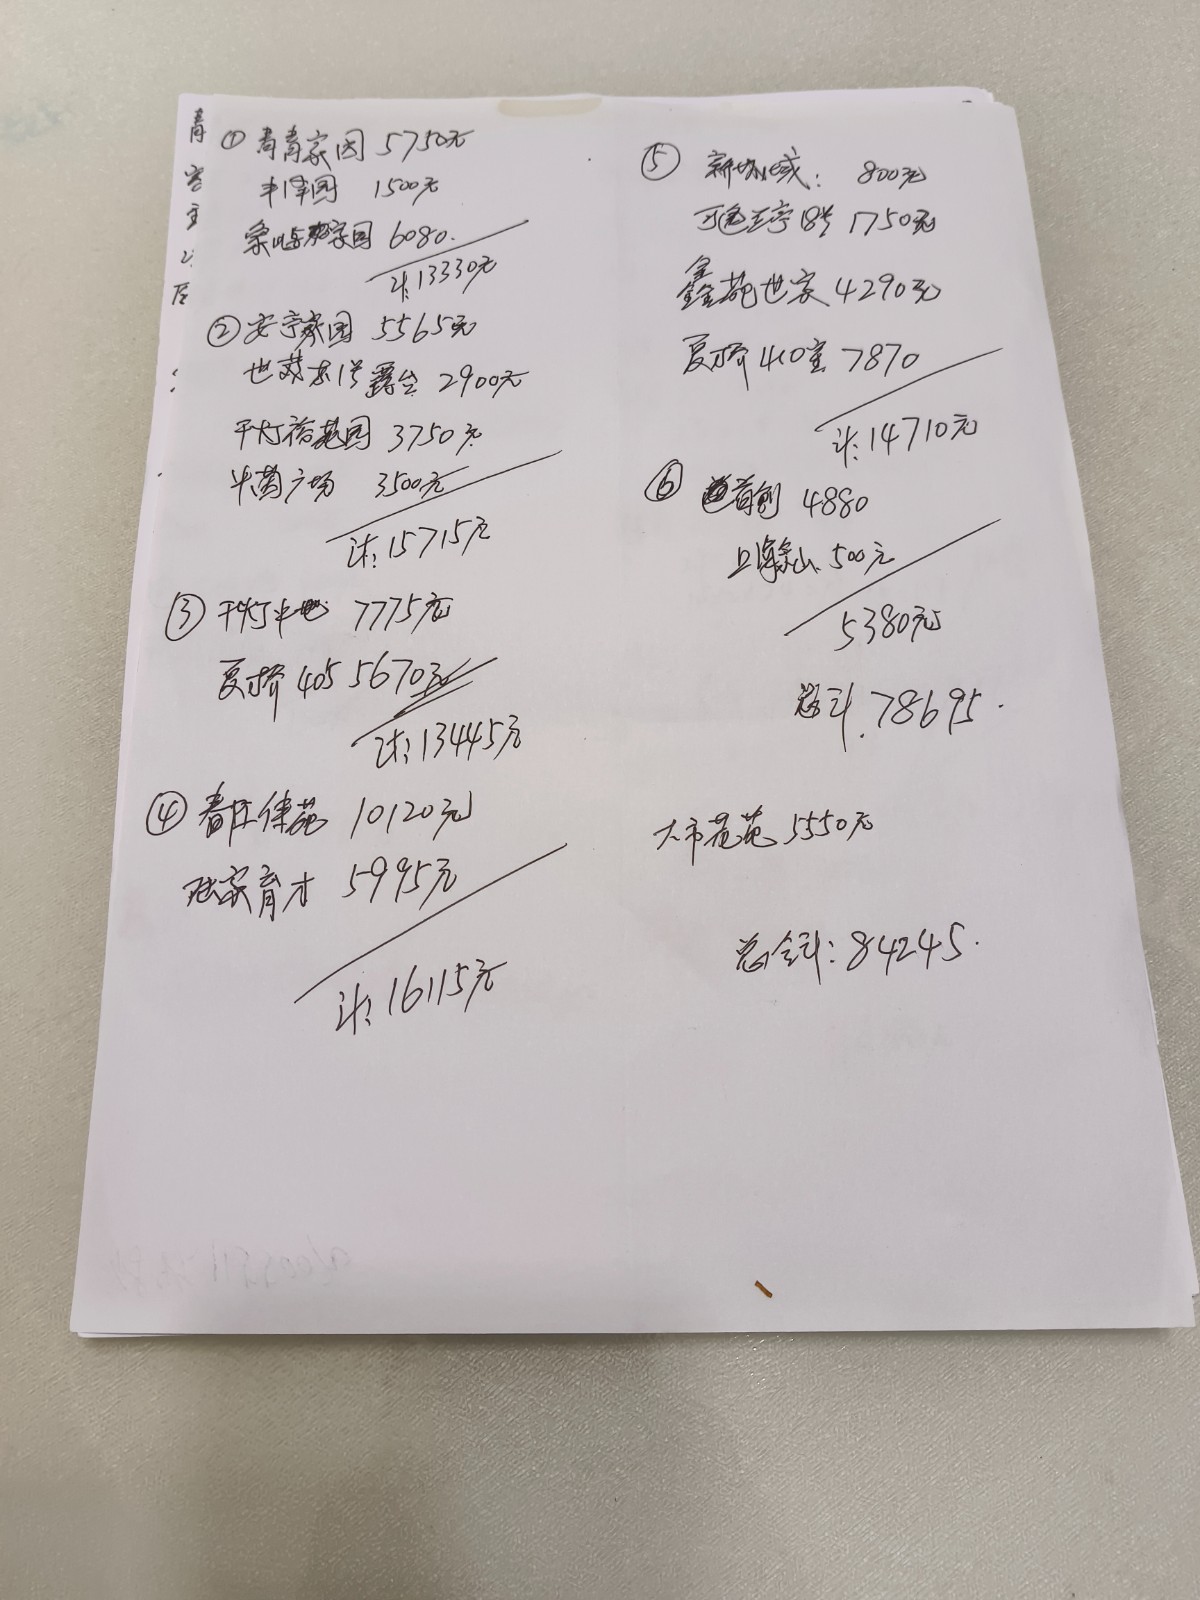 ① 青青家园 5750元
丰泽园 1500元
家园 6080.
计:13330元
② 安亭家园 5565元
世茂 2900元
千灯裕花园 3750元
广场 3500元
计:15715元
③ 千灯 7775元
夏桥 405 5670元
计:13445元
④ 春庄佳苑 10120元
陆家育才 5995元
计:16115元
⑤ 域: 800元
18号 1750元
鑫苑世家 4290元
夏桥 410室 7870
计:14710元
⑥ 首创 4880
上象山 500元
5380元
总计.78695.
大市花苑 5550元
总合计:84245.
青
客